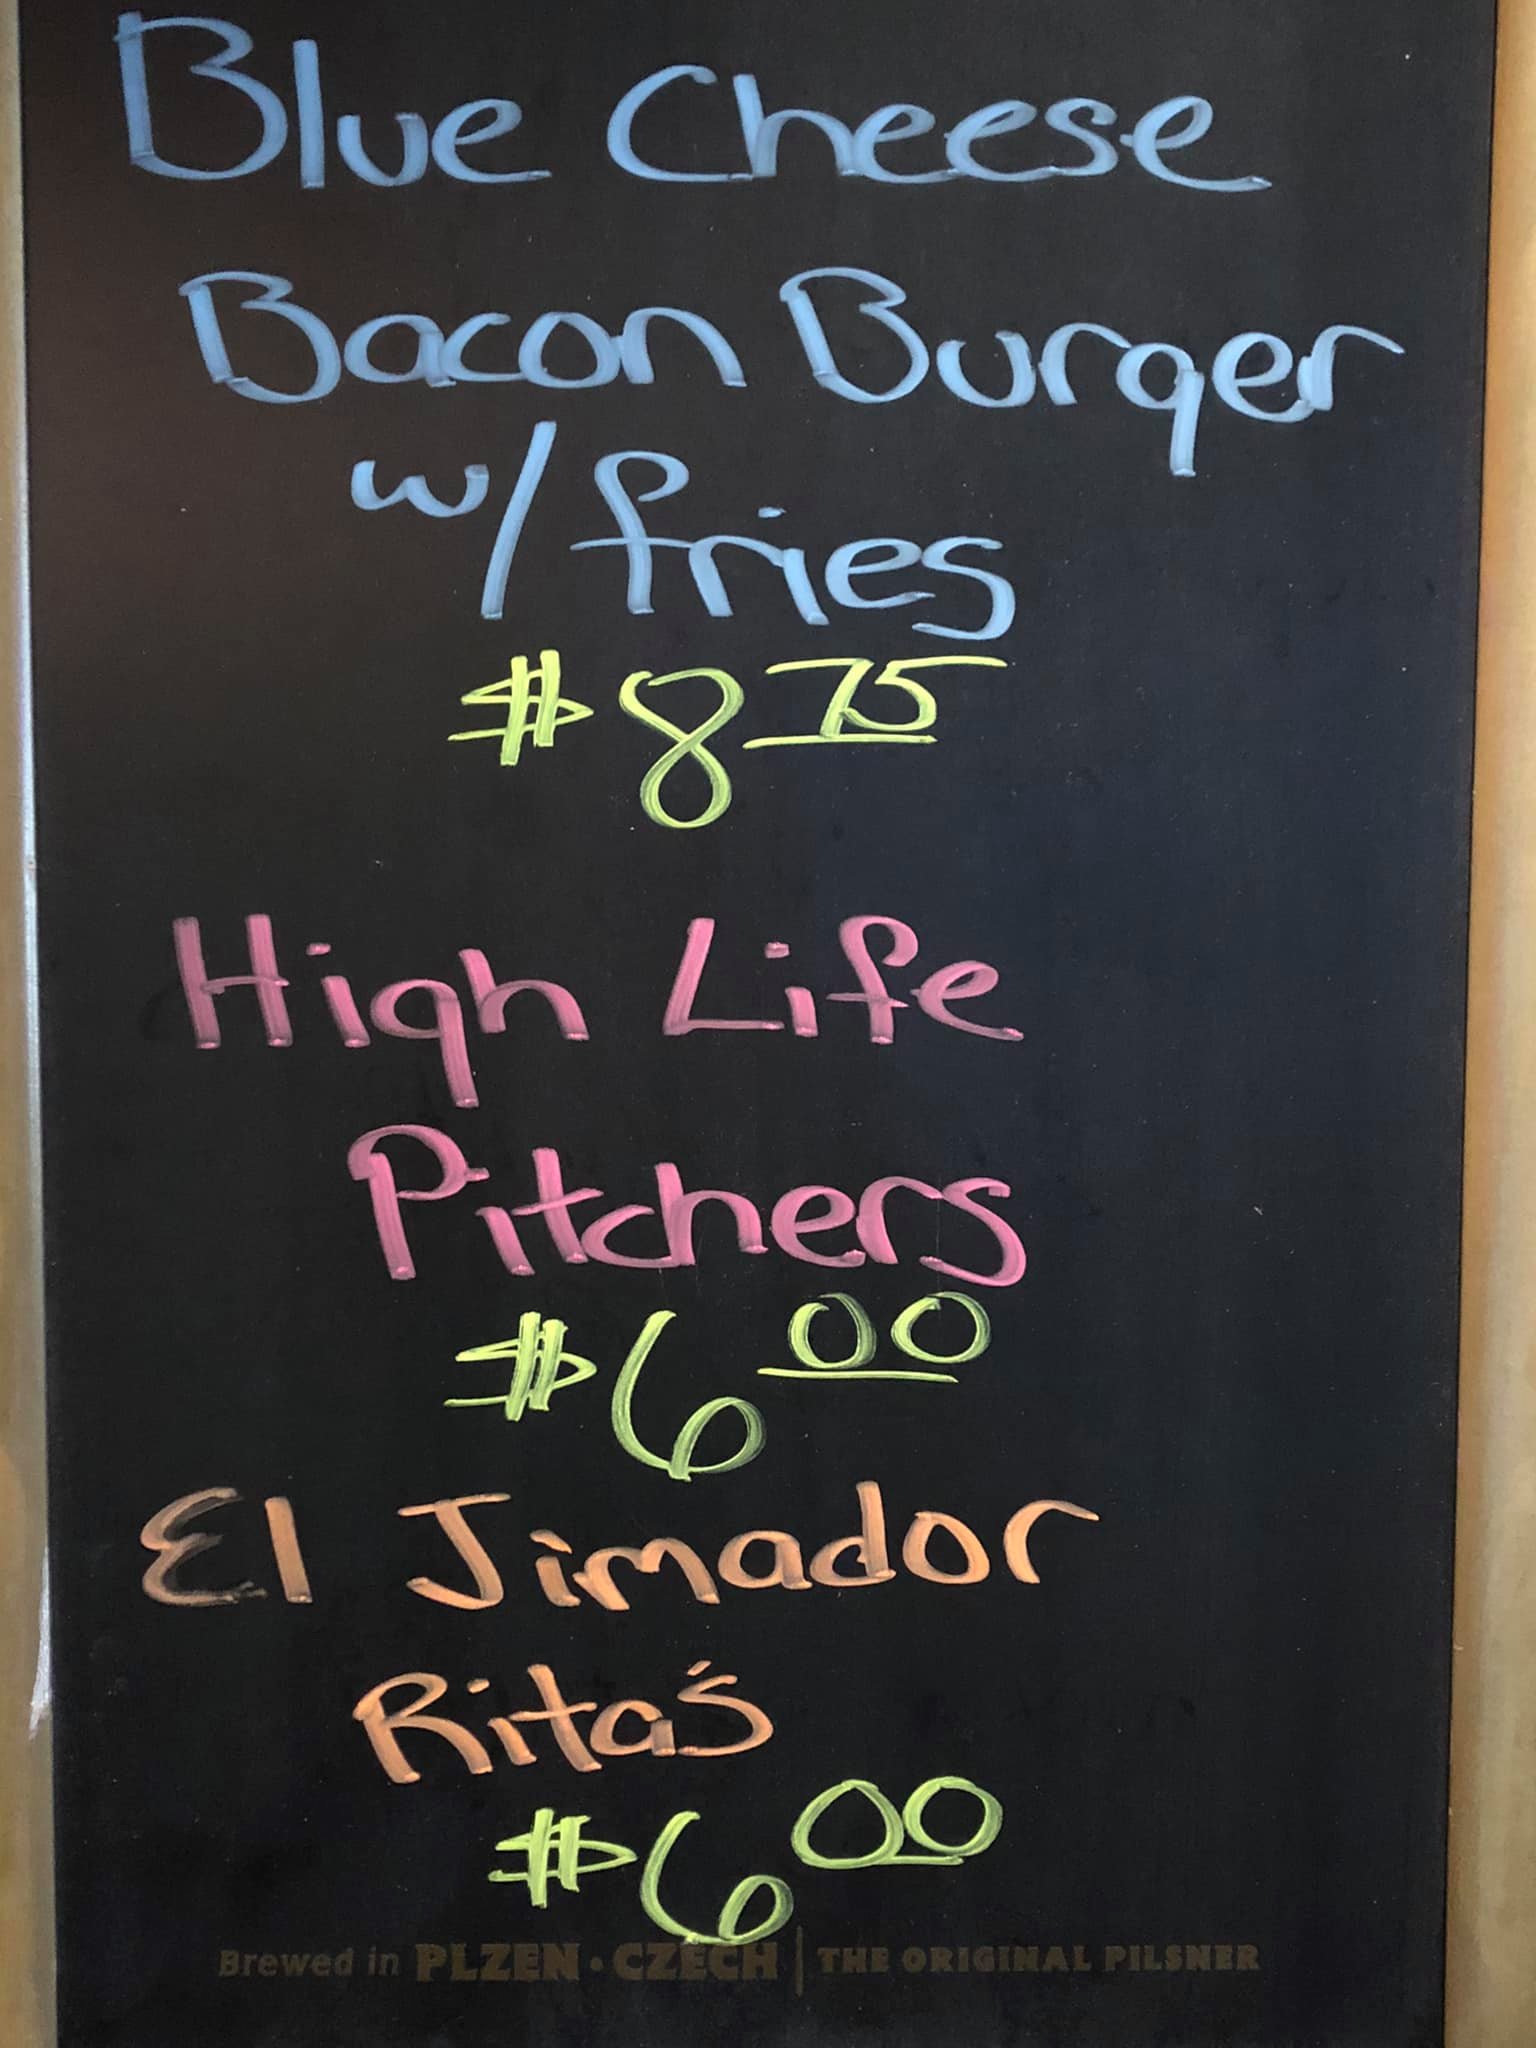 Blue Cheese
Bacon Burger
w/ fries
$8 75
High Life
Pitchers
$6 00
El Jimador
Rita's
$6 00
Brewed in PLZEN • CZECH | THE ORIGINAL PILSNER